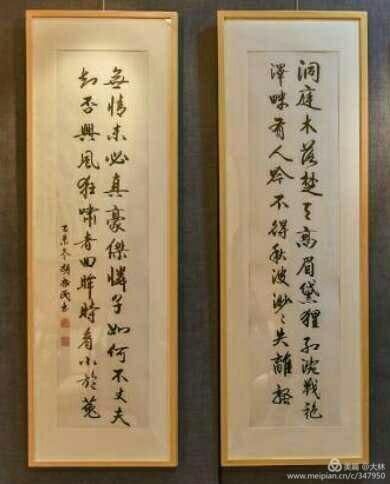 洞庭木落楚天高眉黛猩紅涴戰袍
澤畔有人吟不得秋波渺〻失離騷
無情未必真豪傑憐子如何不丈夫
知否興風狂嘯者回眸時看小於菟
乙未冬 書
美篇 @大林
www.meipian.cn/c/347950